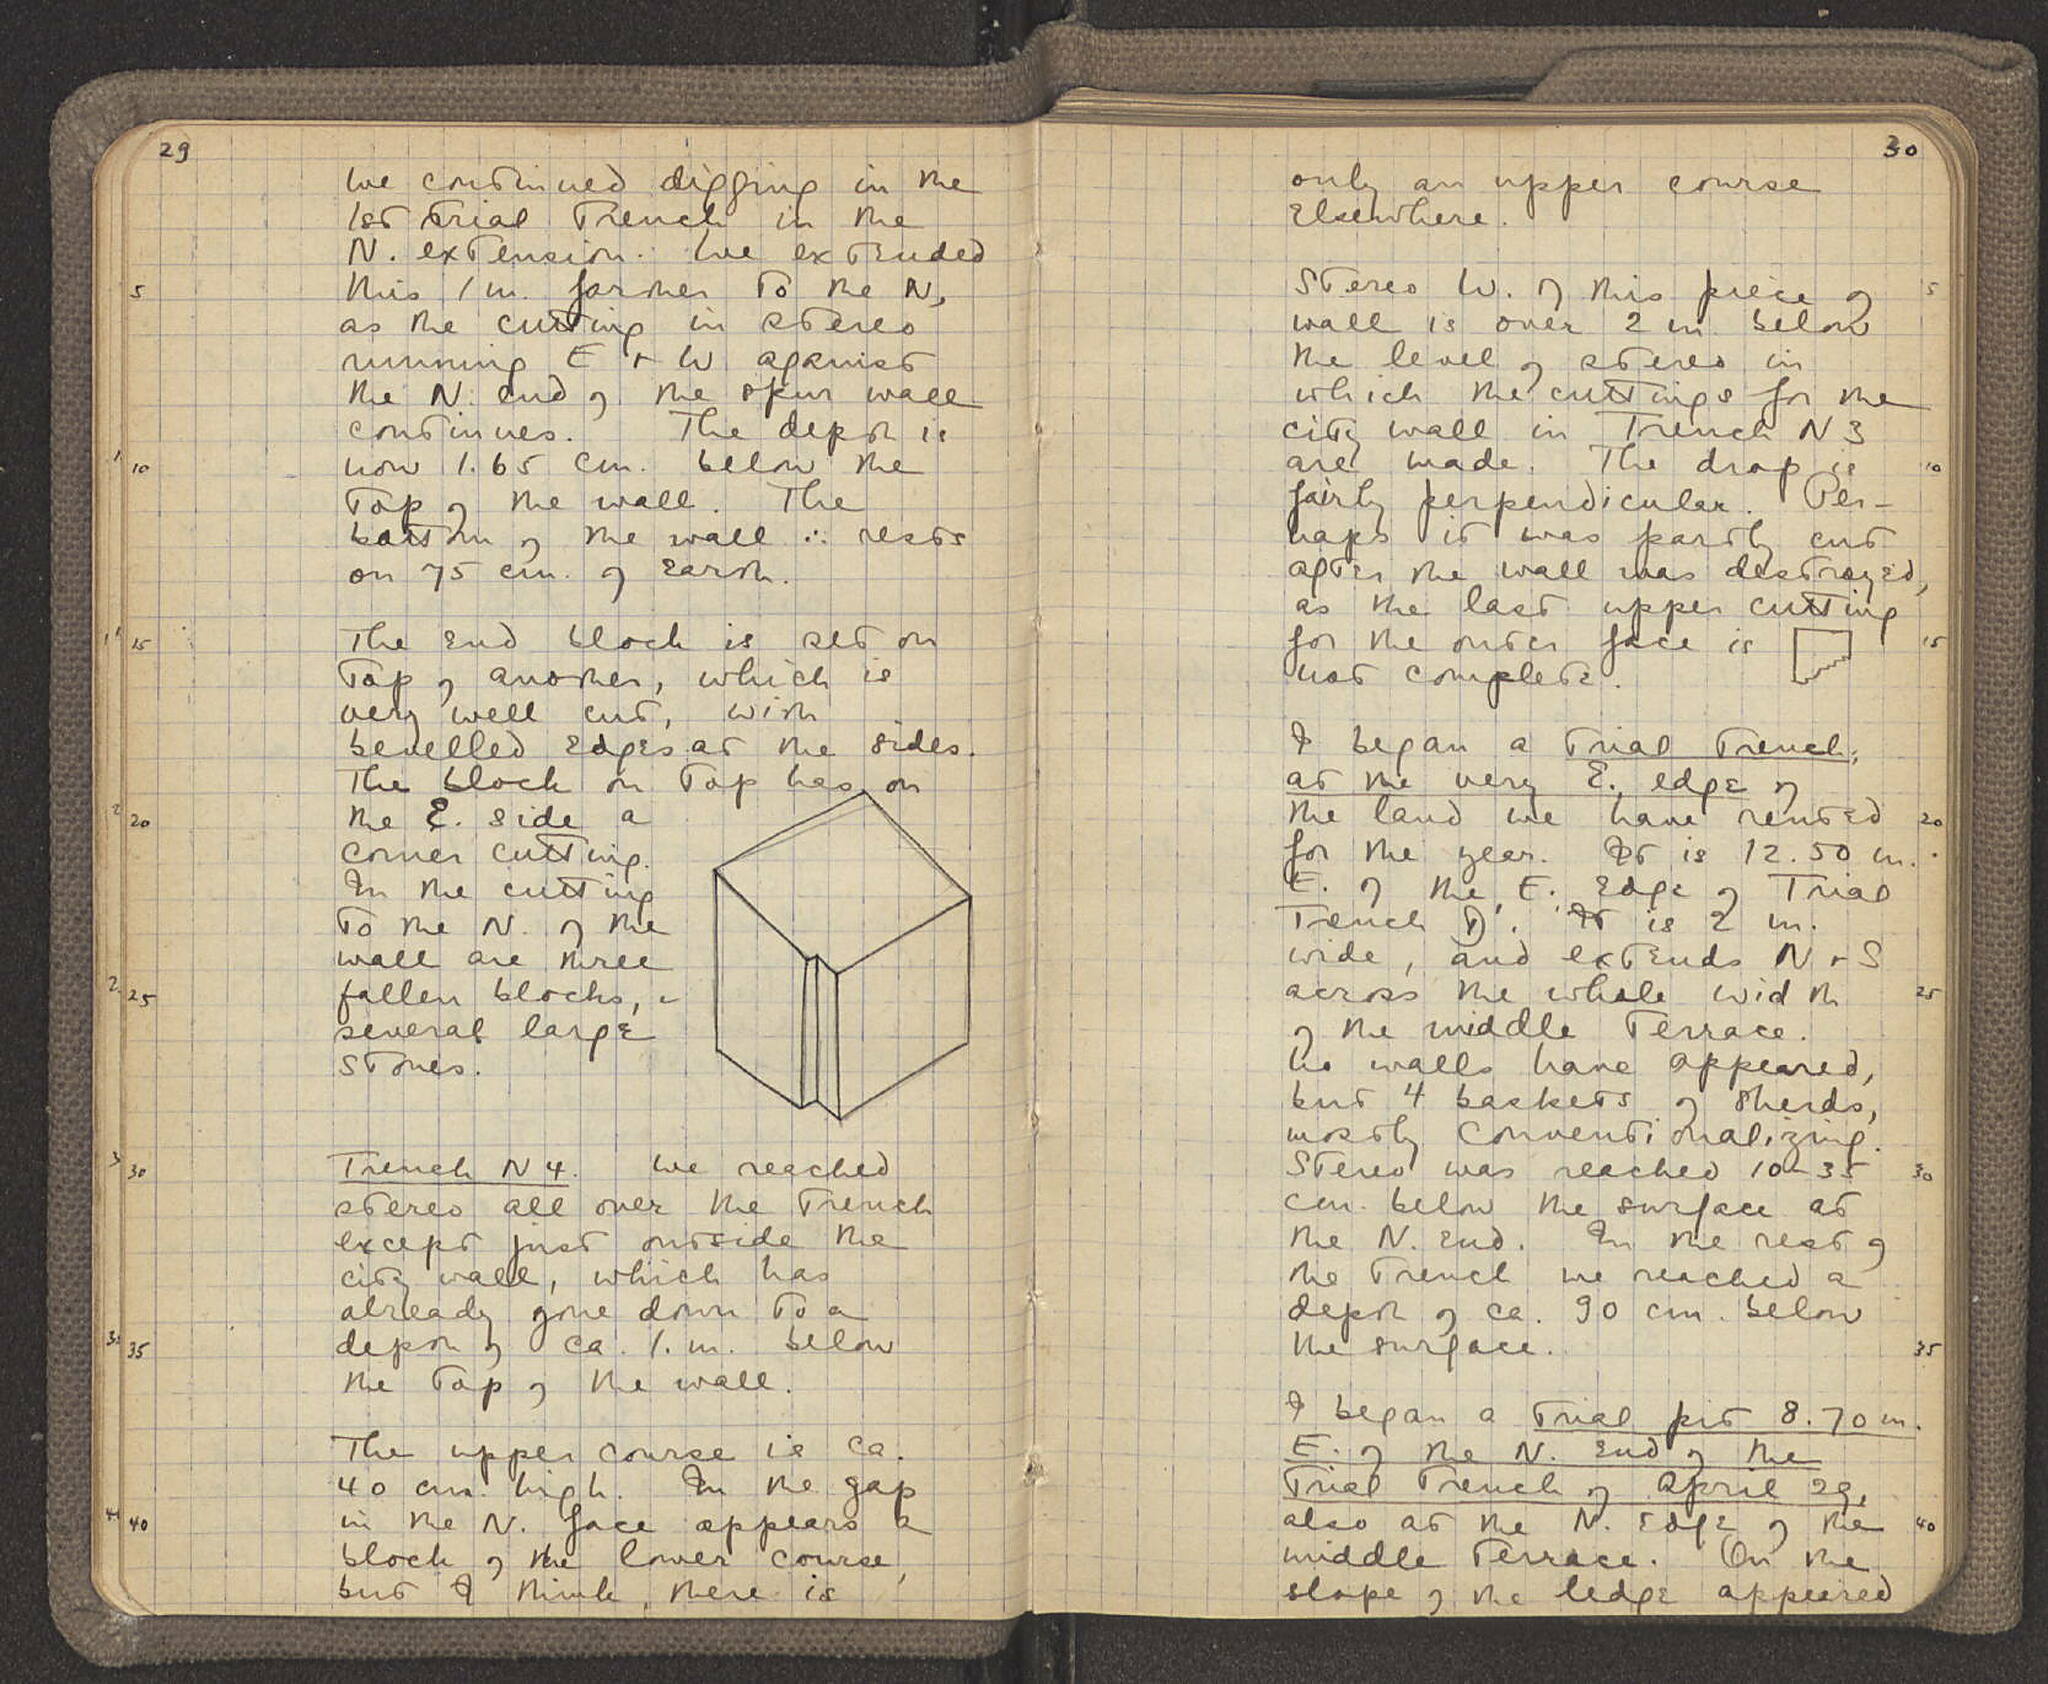 29
We continued digging in the
1st trial trench in the
N. extension. We extended
5
this 1 m. farther to the N,
as the cutting in stereo
running E + W against
the N. end of the spur wall
continues. The depth is
10
now 1.65 cm. below the
top of the wall. The
bottom of the wall ∴ rests
on 75 cm. of earth.
15
The end block is set on
top of another, which is
very well cut, with
bevelled edges at the sides.
The block on top has on
20
the E. side a
corner cutting.
In the cutting
to the N. of the
wall are three
25
fallen blocks, +
several large
stones.
30
Trench N 4. We reached
stereo all over the trench
except just outside the
city wall, which has
already gone down to a
35
depth of ca. 1. m. below
the top of the wall.
The upper course is ca.
40 cm. high. In the gap
40
in the N. face appears a
block of the lower course,
but I think, there is
30
only an upper course
elsewhere.
Stereo W. of this piece of
5
wall is over 2 m. below
the level of stereo in
which the cuttings for the
city wall in Trench N 3
are made. The drop is
10
fairly perpendicular. Per-
haps it was partly cut
after the wall was destroyed,
as the last upper cutting
for the outer face is
15
not complete.
I began a trial trench,
at the very E. edge of
the land we have rented
20
for the year. It is 12.50 m.
E. of the E. edge of Trial
Trench D. It is 2 m.
wide, and extends N + S
across the whole width
25
of the middle terrace.
No walls have appeared,
but 4 baskets of sherds,
mostly Conventionalizing.
Stereo was reached 10-35
30
cm. below the surface at
the N. end. In the rest of
the trench we reached a
depth of ca. 90 cm. below
the surface.
35
I began a trial pit 8.70 m.
E. of the N. end of the
Trial Trench of April 29,
also at the N. edge of the
40
middle terrace. On the
slope of the ledge appeared